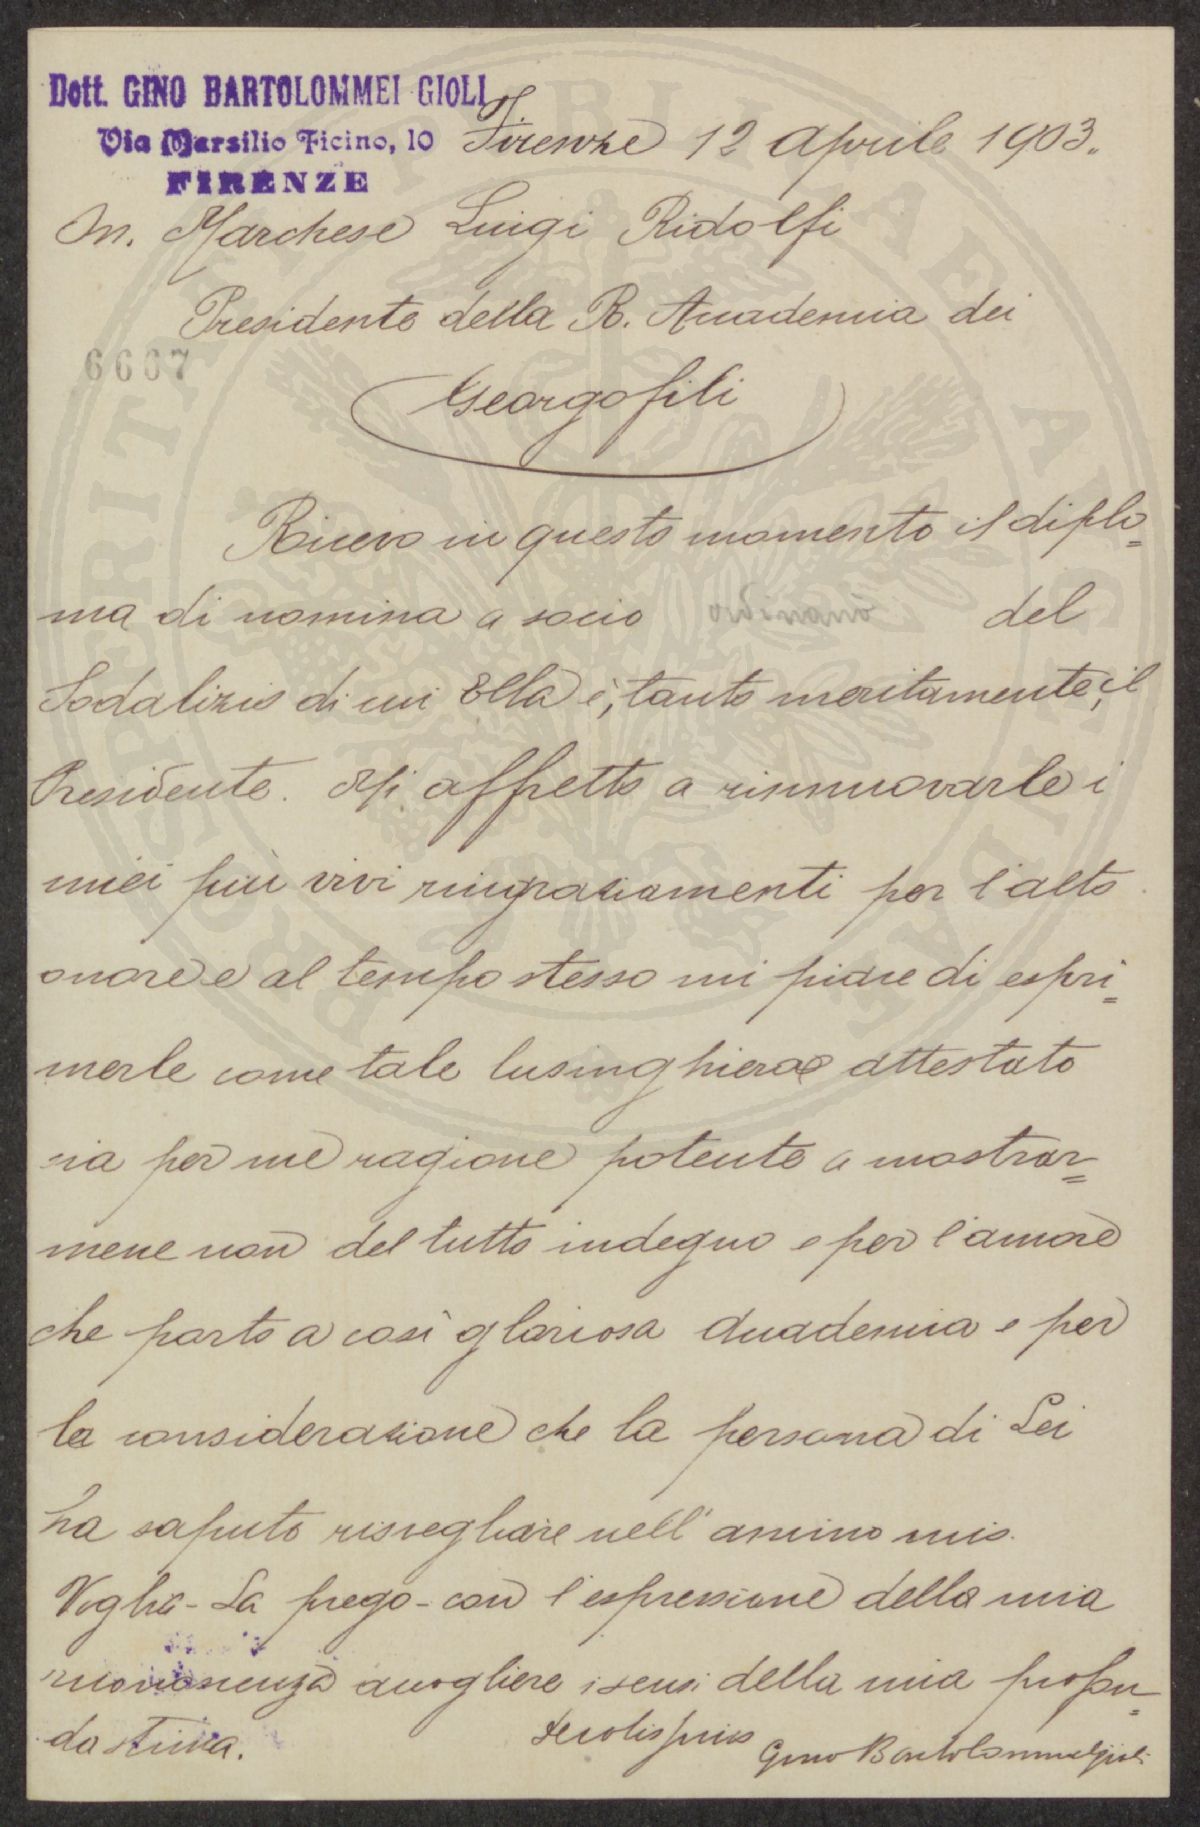 Dott. GINO BARTOLOMMEI GIOLI
Via Marsilio Ficino, 10
FIRENZE
Firenze 12 Aprile 1903.
On. Marchese Luigi Ridolfi
Presidente della R. Accademia dei
6607
Georgofili
Ricevo in questo momento il diplo=
ma di nomina a socio del
Sodalizio di cui Ella è, tanto meritamente, il
Presidente. Mi affretto a rinnuovarle i
miei più vivi ringraziamenti per l'alto
onore e al tempo stesso mi piace di espri=
merle come tale lusinghiero attestato
sia per me ragione potente a mostrar=
mene non del tutto indegno e per l'amore
che porto a così gloriosa Accademia e per
la considerazione che la persona di Lei
ha saputo risvegliare nell'animo mio.
Voglia - La prego - con l'espressione della mia
riconoscenza accogliere i sensi della mia profon=
da stima.
Gino Bartolommei Gioli
PROSPERITATI PUBLICAE AUGENDAE